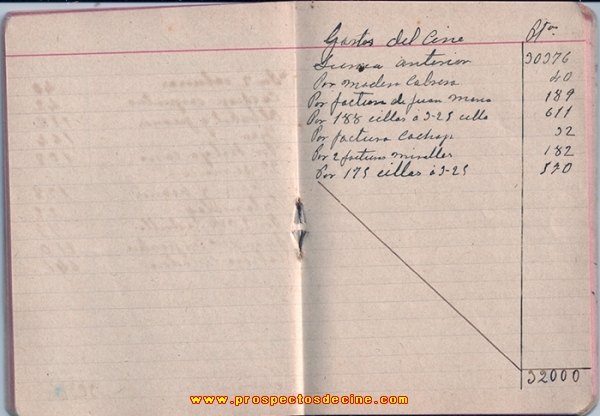 Gastos del Cine Pts
Suma anterior 30376
Por madera Cabrera 40
Por factura de Juan 189
Por 188 cillas a 3-25 cilla 611
Por factura 32
Por 2 facturas Miralles 182
Por 175 cillas á 3-25 570
32000
www.prospectosdecine.com